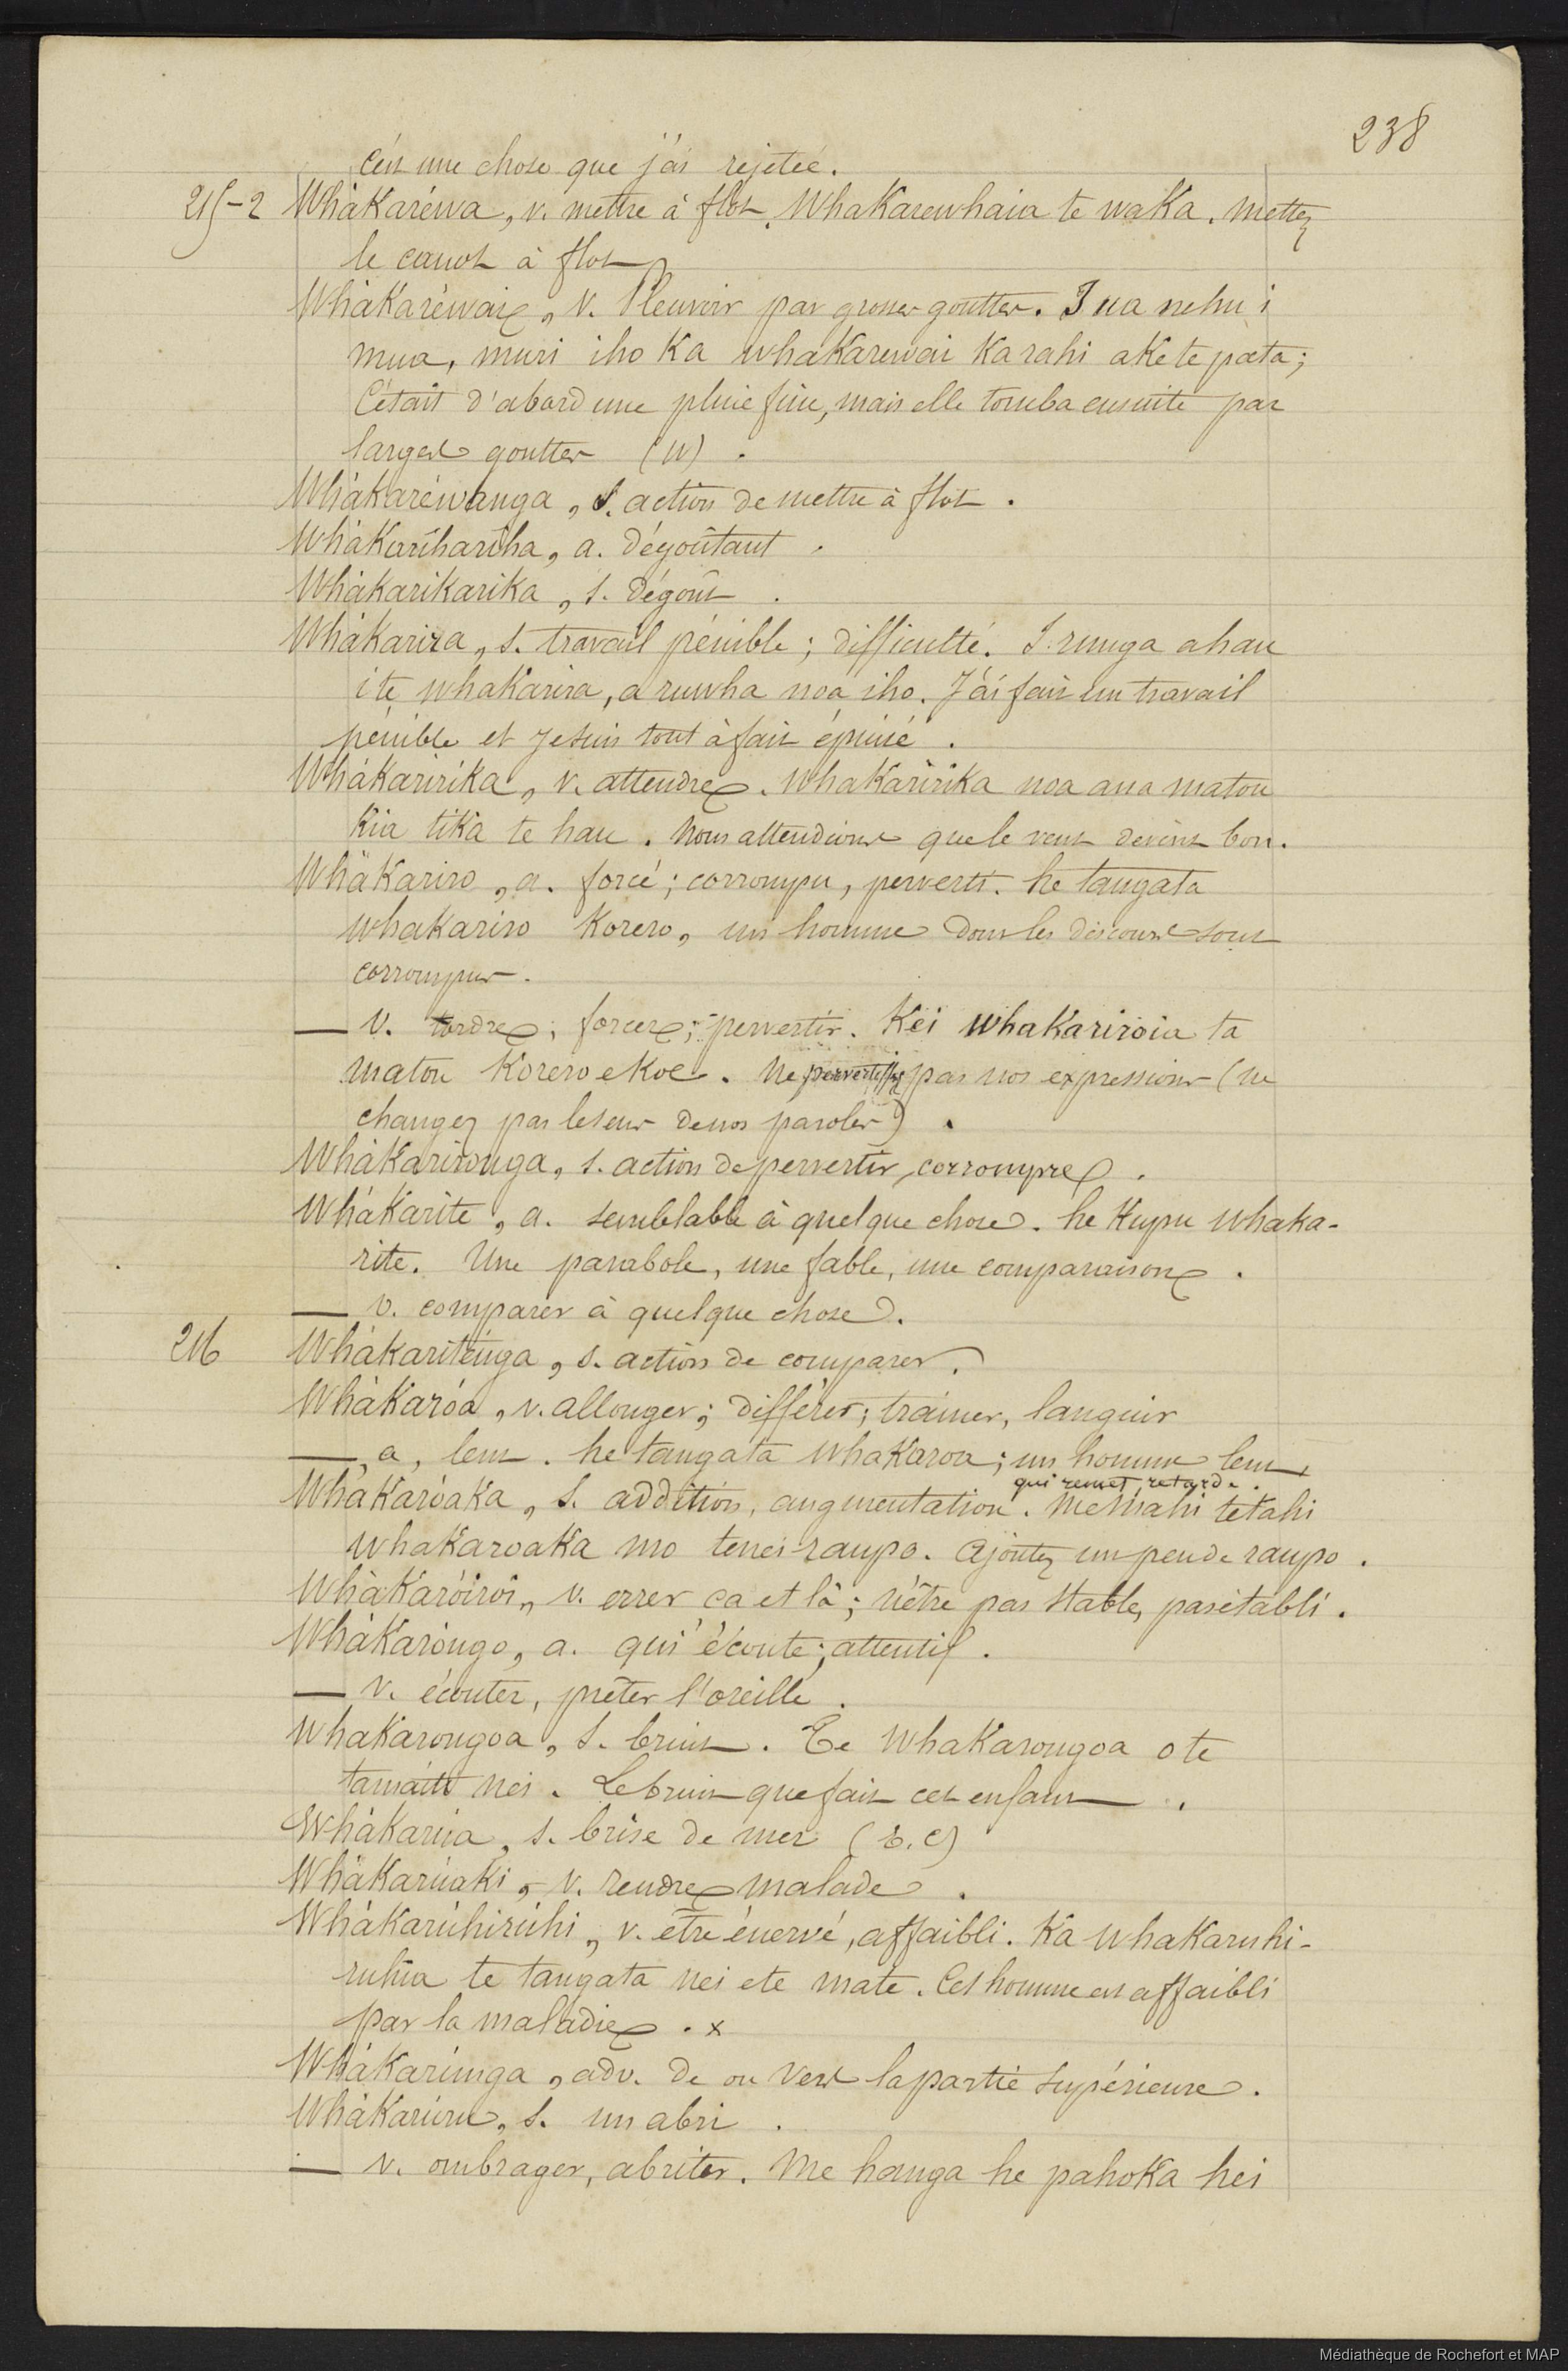 238
C'est une chose que j'ai rejetée.
215-2 Whàkaréwa, v. mettre à flot. Whakarewhaia te waka. Mettez
le canot à flot
Whàkaréwai, v. Pleuvoir par grosses gouttes. I ua nehu i
mua, muri iho ka whakarewai ka rahi ake te pata;
C'était d'abord une pluie fine, mais elle tomba ensuite par
larges gouttes (W).
Whàkaréwanga, s. action de mettre à flot.
Whàkarihariha, a. dégoûtant.
Whàkarikarika, s. dégoût.
Whàkarira, s. travail pénible; difficulté. I runga ahau
i te whakarira, a ruwha noa iho. J'ai fait un travail
pénible et je suis tout à fait épuisé.
Whàkaririka, v. attendre. Whakaririka noa ana matou
kia tika te hau. Nous attendions que le vent devint bon.
Whàkariro, a. forcé; corrompu, perverti. he tangata
whakariro korero, un homme dont les discours sont
corrompus.
— v. tordre; forcer; pervertir. Kei whakariroia ta
matou korero e koe. Ne pervertissez pas nos expressions (ne
changez pas le sens de nos paroles).
Whàkarironga, s. action de pervertir, corrompre.
Whàkarite, a. semblable à quelque chose. he Kupu whaka-
rite. Une parabole, une fable, une comparaison.
— v. comparer à quelque chose.
216 Whàkariténga, s. action de comparer.
Whàkaróa, v. allonger; différer; trainer, languir
—, a, lent. he tangata whakaroa; un homme lent
qui remet, retarde.
Whàkaróaka, s. addition, augmentation. Me mahi tetahi
whakaroaka mo tenei raupo. Ajoutez un peu de raupo.
Whàkaróiroi, v. errer ca et là; n'être pas stable, pas établi.
Whàkaróngo, a. qui écoute; attentif.
— v. écouter, prêter l'oreille.
Whakarongoa, s. bruit. Te whakarongoa o te
tamaiti nei. Le bruit que fait cet enfant.
Whàkarúa, s. brise de mer (E. C)
Whàkarúaki, v. rendre malade.
Whàkarúhirúhi, v. être énervé, affaibli. Ka whakaruhi-
ruhia te tangata nei e te mate. Cet homme est affaibli
par la maladie. x
Whàkarúnga, adv. de ou vers la partie supérieure.
Whàkarúru, s. un abri.
— v. ombrager, abriter. Me hanga he pahoka hei
Médiathèque de Rochefort et MAP